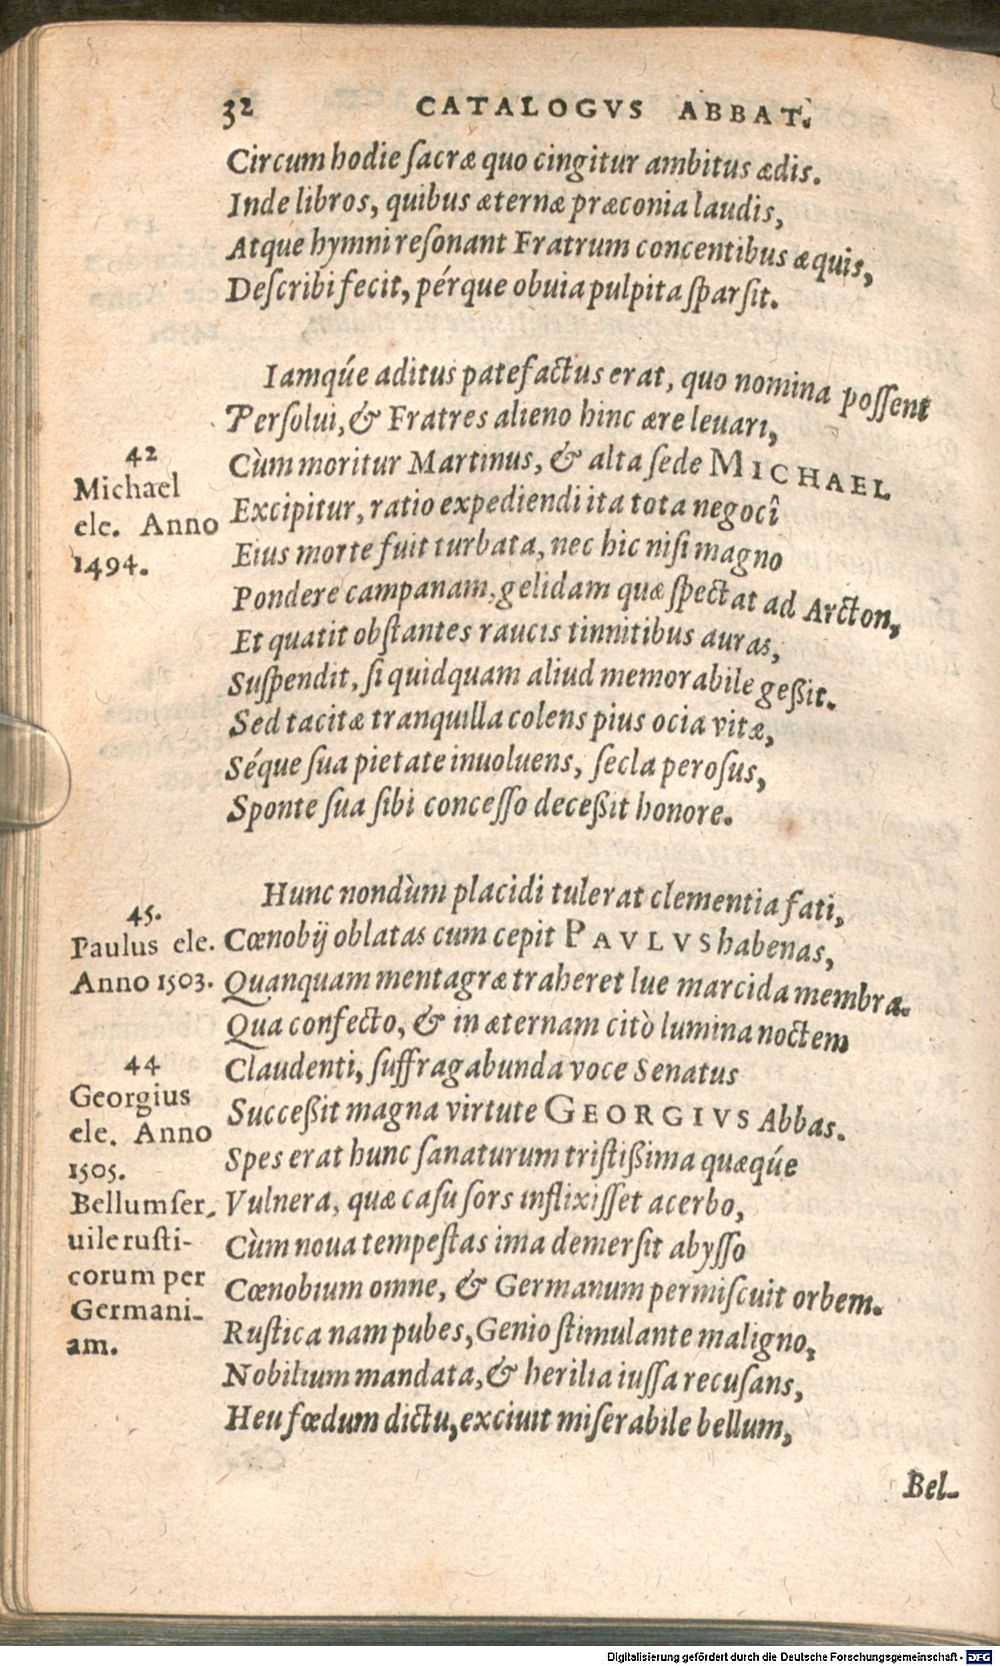 32 CATALOGVS ABBAT.
Circum hodie sacræ quo cingitur ambitus ædis.
Inde libros, quibus æternæ præconia laudis,
Atque hymni resonant Fratrum concentibus æquis,
Describi fecit, pérque obuia pulpita sparsit.
Iamqúe aditus patefactus erat, quo nomina possent
Persolui, & Fratres alieno hinc ære leuari,
Cùm moritur Martinus, & alta sede MICHAEL
Excipitur, ratio expediendi ita tota negocî
Eius morte fuit turbata, nec hic nisi magno
Pondere campanam, gelidam quæ spectat ad Arcton,
Et quatit obstantes raucis tinnitibus auras,
Suspendit, si quidquam aliud memorabile geßit.
Sed tacitæ tranquilla colens pius ocia vitæ,
Séque sua pietate inuoluens, secla perosus,
Sponte sua sibi concesso deceßit honore.
42
Michael
ele. Anno
1494.
Hunc nondùm placidi tulerat clementia fati,
Cœnobij oblatas cum cepit PAVLVS habenas,
Quanquam mentagræ traheret lue marcida membra.
Qua confecto, & in æternam citò lumina noctem
Claudenti, suffragabunda voce Senatus
Succeßit magna virtute GEORGIVS Abbas.
Spes erat hunc sanaturum tristißima quæqúe
Vulnera, quæ casu sors inflixisset acerbo,
Cùm noua tempestas ima demersit abysso
Cœnobium omne, & Germanum permiscuit orbem.
Rustica nam pubes, Genio stimulante maligno,
Nobilium mandata, & herilia iussa recusans,
Heu fœdum dictu, exciuit miserabile bellum,
45.
Paulus ele.
Anno 1503.
44
Georgius
ele. Anno
1505.
Bellum ser-
uile rusti-
corum per
Germani-
am.
Bel-
Digitalisierung gefördert durch die Deutsche Forschungsgemeinschaft - DFG